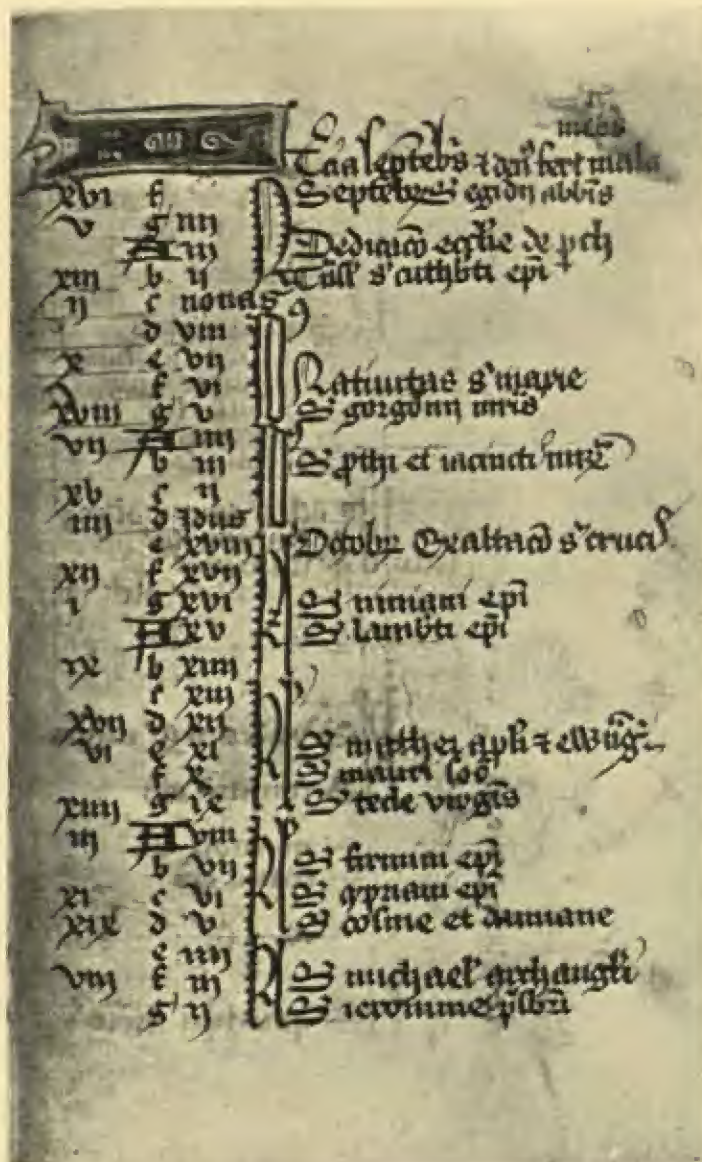 mcōs
Septēbrs egidij abbīs
xvi f
v g iiij
A iij Dedicacō ecclie de pth
xiij b ij s' cuthbti epi
ij c nonas
d viij
x e vij
f vi Natiuitas s' marie
xviij g v S gorgonij mris
vij A iiij
b iij S pthi et iacincti mr
xv c ij
iiij d Idus
e xviij Octobr Exaltacō s' crucis
xij f xvij
i g xvi S niniani epi
A xv S lambti epi
ix b xiiij
c xiij
xvij d xij
vi e xi S mathei apli
f x S maurī soc
xiiij g ix S tecle virgīs
iij A viij
b vij S firmini epi
xi c vi S cypriani epi
xix d v S cosme et damiane
e iiij
viij f iij S michael' archangli
g ij S ieronime psbri